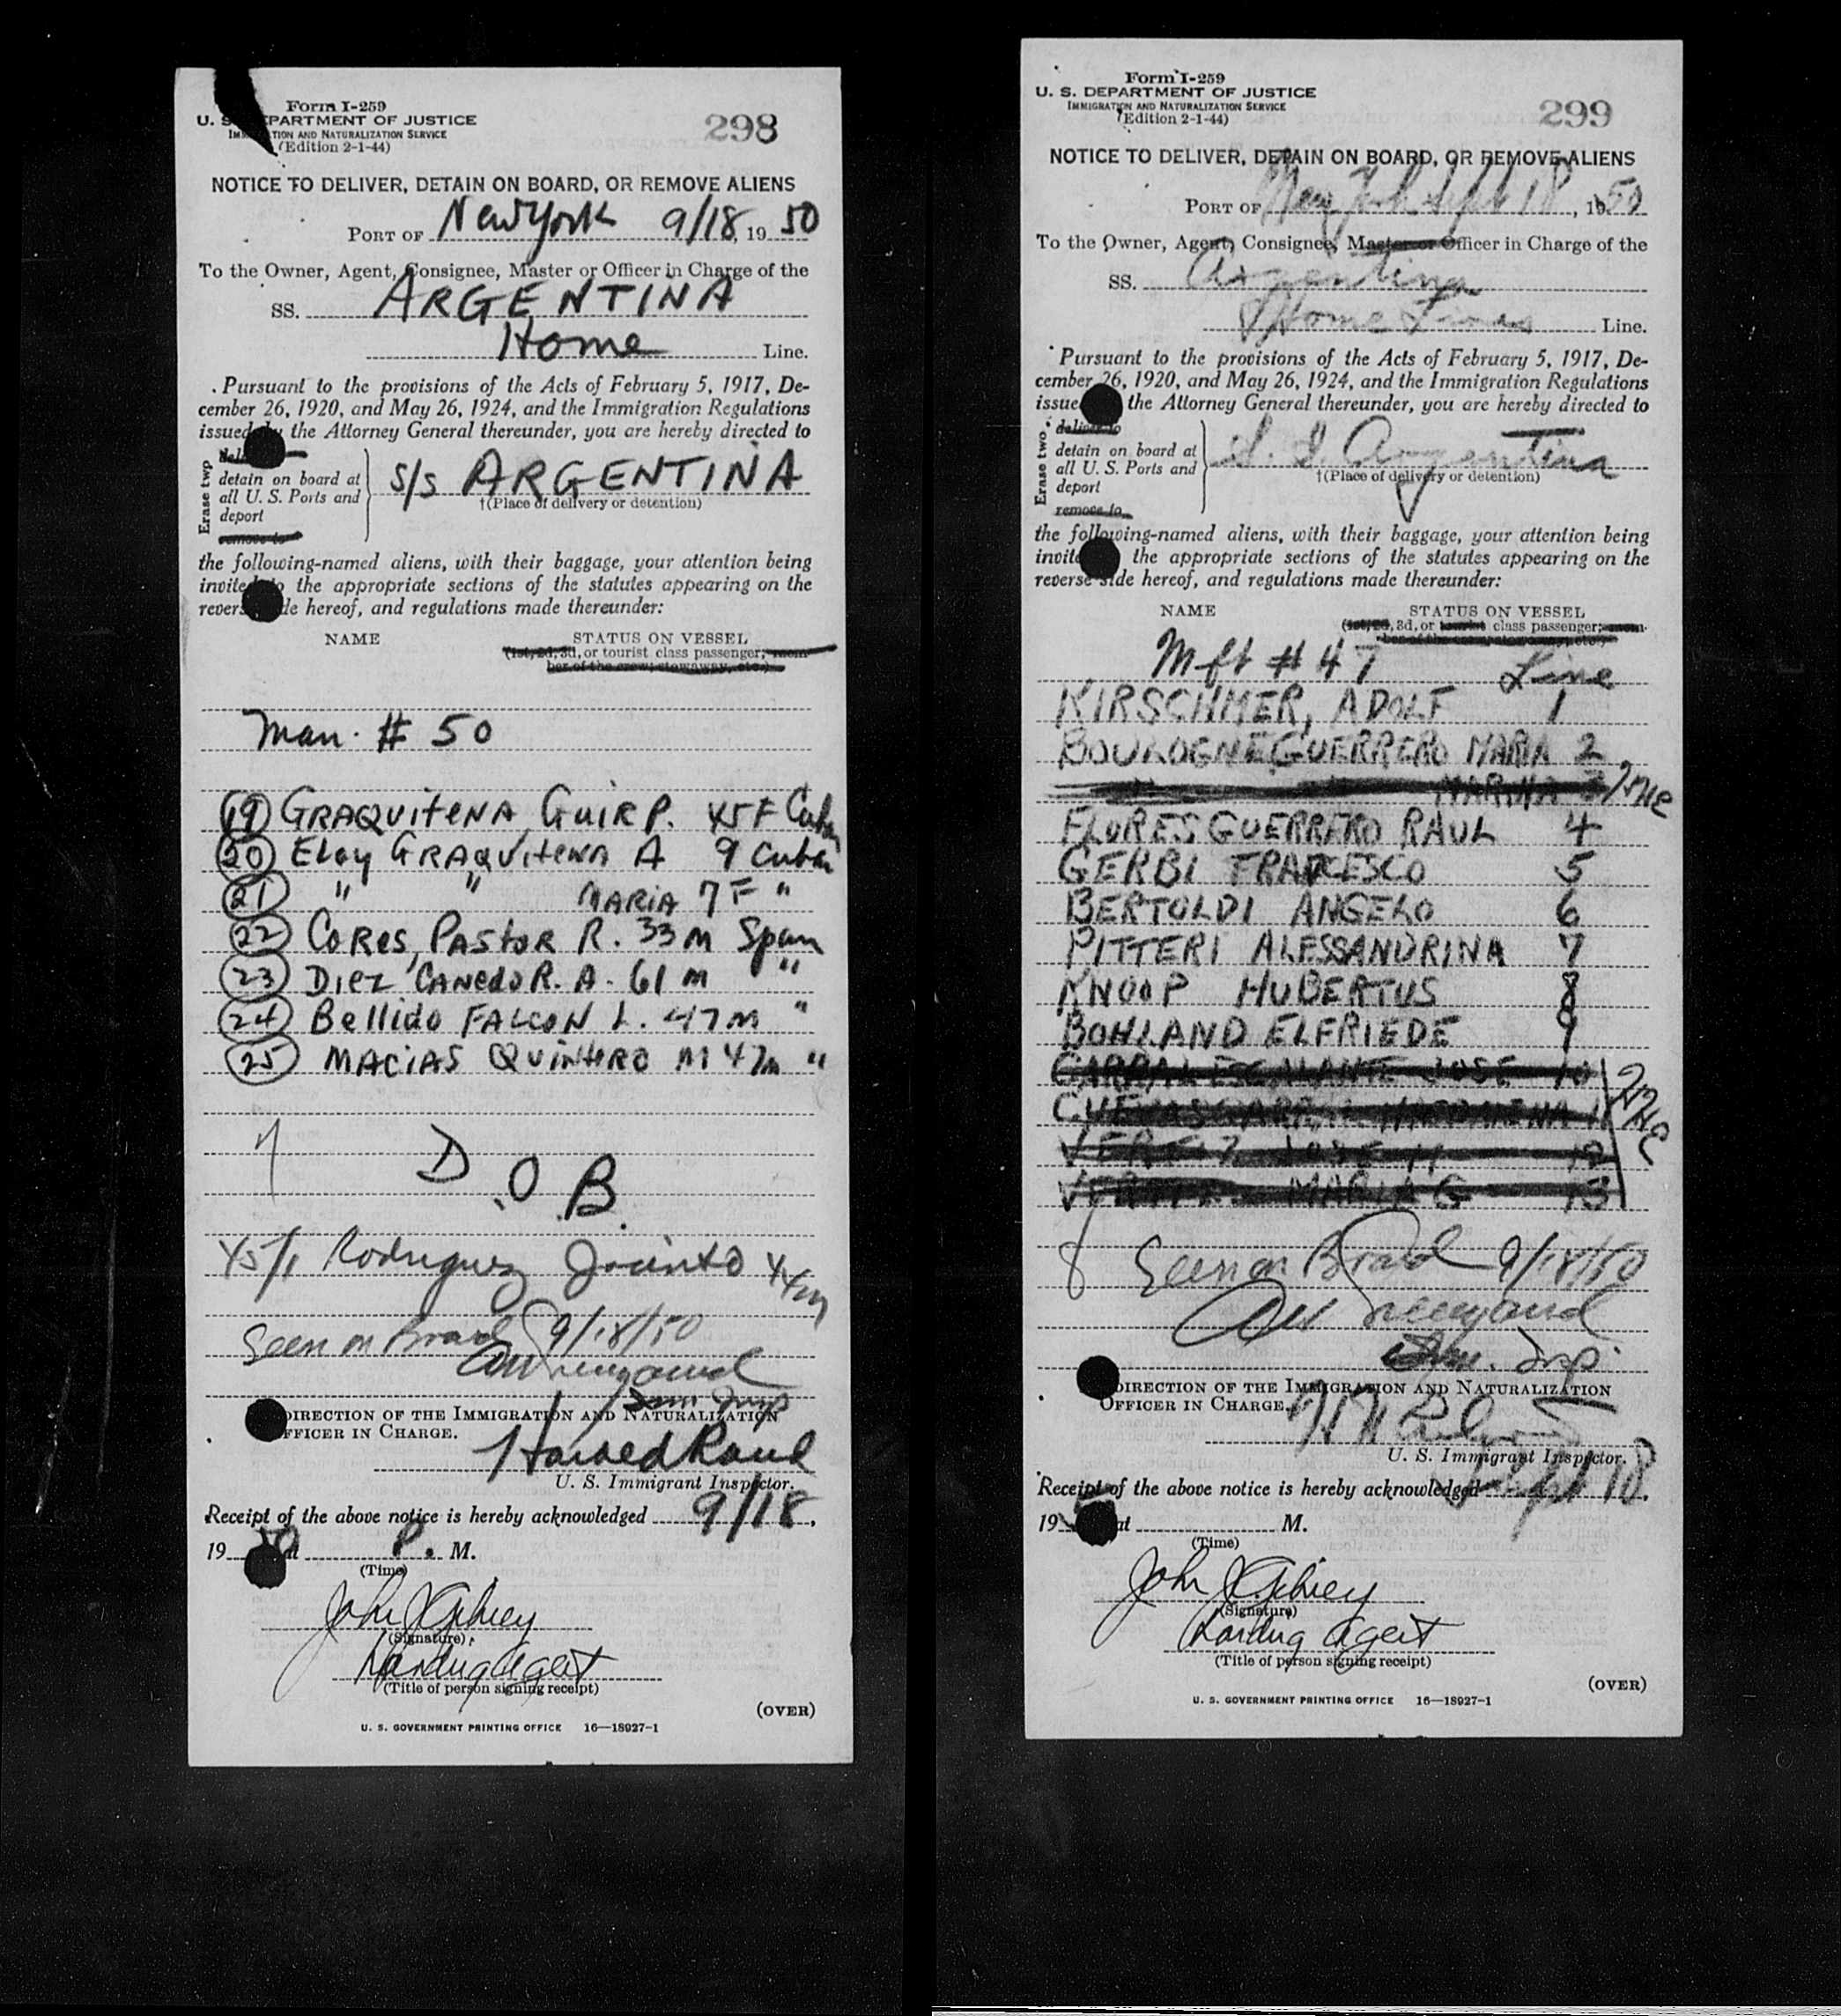 Form I-259
U. S. DEPARTMENT OF JUSTICE
IMMIGRATION AND NATURALIZATION SERVICE
(Edition 2-1-44)
298
NOTICE TO DELIVER, DETAIN ON BOARD, OR REMOVE ALIENS
PORT OF New York 9/18, 19 50
To the Owner, Agent, Consignee, Master or Officer in Charge of the
SS. ARGENTINA
Home Line.
Pursuant to the provisions of the Acts of February 5, 1917, De-
cember 26, 1920, and May 26, 1924, and the Immigration Regulations
issued by the Attorney General thereunder, you are hereby directed to
Erase two
detain on board at
all U. S. Ports and
deport
remove to
S/S ARGENTINA
†(Place of delivery or detention)
the following-named aliens, with their baggage, your attention being
invited to the appropriate sections of the statutes appearing on the
reverse side hereof, and regulations made thereunder:
NAME STATUS ON VESSEL
(1st, 2d, 3d, or tourist class passenger; mem-
ber of the crew, stowaway, etc.)
Man. # 50
19 GRAQUITENA, GUIR P. 45 F Cuban
20 Eloy GRAQUITENA A 9 Cuban
21 " " MARIA 7 F "
22 CORES, PASTOR R. 33 M Span
23 DIEZ CANEDO R. A. 61 M "
24 Bellido FALCON L. 47 M "
25 MACIAS QUINTERO M 47 m "
7 D.O.B.
45/1 Rodriguez Jacinto 44m
Seen on Board 9/18/50
Imm Insp
DIRECTION OF THE IMMIGRATION AND NATURALIZATION
OFFICER IN CHARGE.
U. S. Immigrant Inspector.
Receipt of the above notice is hereby acknowledged 9/18,
19 50 at P. M.
(Time)
John J Gilvey
(Signature)
Landing Agent
(Title of person signing receipt)
(OVER)
U. S. GOVERNMENT PRINTING OFFICE 16—18927-1
Form I-259
U. S. DEPARTMENT OF JUSTICE
IMMIGRATION AND NATURALIZATION SERVICE
(Edition 2-1-44)
299
NOTICE TO DELIVER, DETAIN ON BOARD, OR REMOVE ALIENS
PORT OF New York Sept 18, 1950
To the Owner, Agent, Consignee, Master or Officer in Charge of the
SS. Argentina
Home Lines Line.
Pursuant to the provisions of the Acts of February 5, 1917, De-
cember 26, 1920, and May 26, 1924, and the Immigration Regulations
issued the Attorney General thereunder, you are hereby directed to
Erase two
deliver to
detain on board at
all U. S. Ports and
deport
remove to
S. S. Argentina
†(Place of delivery or detention)
the following-named aliens, with their baggage, your attention being
invited the appropriate sections of the statutes appearing on the
reverse side hereof, and regulations made thereunder:
NAME STATUS ON VESSEL
(1st, 2d, 3d, or tourist class passenger; mem-
ber of the crew, stowaway, etc.)
Mft # 47 Line
KIRSCHMER, ADOLF 1
BOULOGNE GUERRERO MARIA 2
MARINA 3
FLORES GUERRERO RAUL 4
GERBI FRANCESCO 5
BERTOLDI ANGELO 6
PITTERI ALESSANDRINA 7
KNOOP HUBERTUS 8
BOHLAND ELFRIEDE 9
GARRAL ESCALANTE JOSE 10
CUEVAS MAGDALENA 11
JOSE M 12
MARIA G 13
8 Seen on Board 9/18/50
Imm. Insp.
DIRECTION OF THE IMMIGRATION AND NATURALIZATION
OFFICER IN CHARGE.
U. S. Immigrant Inspector.
Receipt of the above notice is hereby acknowledged Sept 18,
19 at M.
(Time)
John J Gilvey
(Signature)
Landing Agent
(Title of person signing receipt)
(OVER)
U. S. GOVERNMENT PRINTING OFFICE 16—18927-1